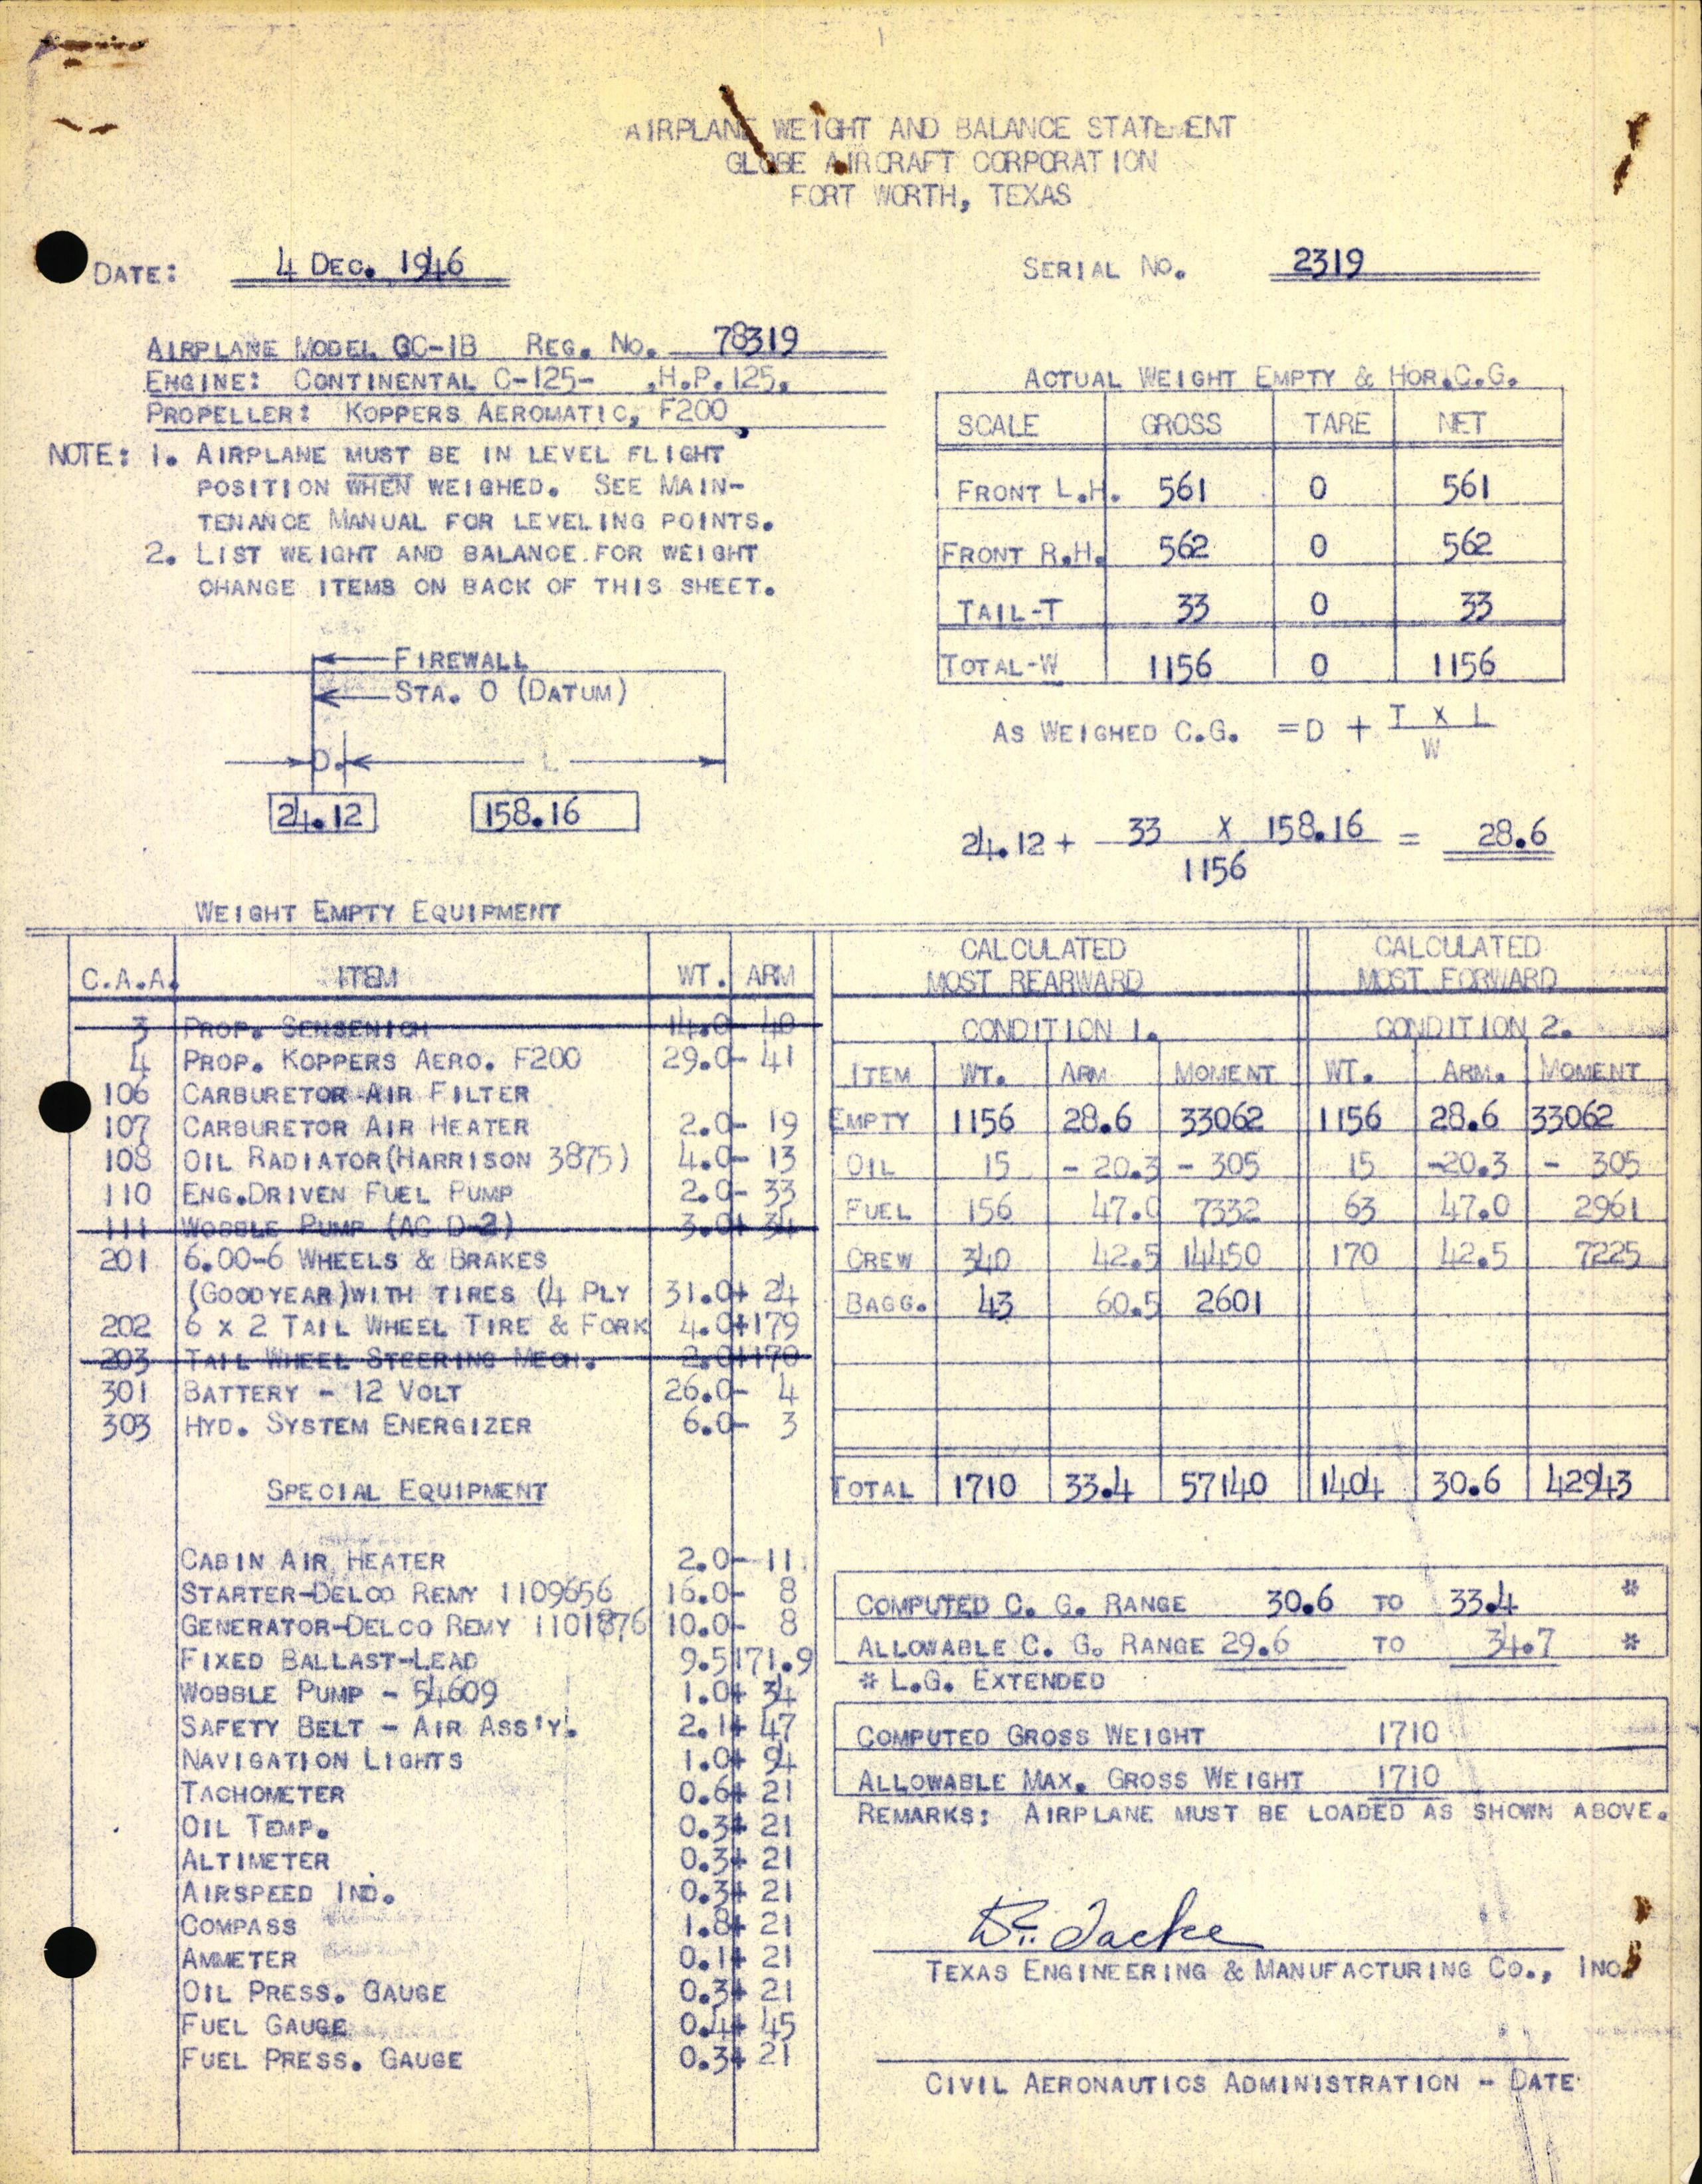 AIRPLANE WEIGHT AND BALANCE STATEMENT
GLOBE AIRCRAFT CORPORATION
FORT WORTH, TEXAS
DATE: 4 DEC. 1946 SERIAL NO. 2319
AIRPLANE MODEL GC-1B REG. NO. 78319
ENGINE: CONTINENTAL C-125- .H.P. 125.
PROPELLER: KOPPERS AEROMATIC, F200
NOTE: 1. AIRPLANE MUST BE IN LEVEL FLIGHT
POSITION WHEN WEIGHED. SEE MAIN-
TENANCE MANUAL FOR LEVELING POINTS.
2. LIST WEIGHT AND BALANCE FOR WEIGHT
CHANGE ITEMS ON BACK OF THIS SHEET.
ACTUAL WEIGHT EMPTY & HOR.C.G.
SCALE GROSS TARE NET
FRONT L.H. 561 0 561
FRONT R.H. 562 0 562
TAIL-T 33 0 33
TOTAL-W 1156 0 1156
FIREWALL
STA. 0 (DATUM)
D. L
24.12 158.16
AS WEIGHED C.G. = D + T X L
W
24.12 + 33 X 158.16 = 28.6
1156
WEIGHT EMPTY EQUIPMENT
C.A.A. ITEM WT. ARM
3 PROP. SENSENICH 14.0- 40
4 PROP. KOPPERS AERO. F200 29.0- 41
106 CARBURETOR AIR FILTER
107 CARBURETOR AIR HEATER 2.0- 19
108 OIL RADIATOR(HARRISON 3875) 4.0- 13
110 ENG.DRIVEN FUEL PUMP 2.0- 33
111 WOBBLE PUMP (AC D-2) 3.0+ 34
201 6.00-6 WHEELS & BRAKES
(GOODYEAR)WITH TIRES (4 PLY 31.0+ 24
202 6 X 2 TAIL WHEEL TIRE & FORK 4.0+179
203 TAIL WHEEL STEERING MECH. 2.0+170
301 BATTERY - 12 VOLT 26.0- 4
303 HYD. SYSTEM ENERGIZER 6.0- 3
SPECIAL EQUIPMENT
CABIN AIR HEATER 2.0- 11
STARTER-DELCO REMY 1109656 16.0- 8
GENERATOR-DELCO REMY 1101876 10.0- 8
FIXED BALLAST-LEAD 9.5 171.9
WOBBLE PUMP - 54609 1.0+ 34
SAFETY BELT - AIR ASS'Y. 2.1+ 47
NAVIGATION LIGHTS 1.0+ 94
TACHOMETER 0.6+ 21
OIL TEMP. 0.3+ 21
ALTIMETER 0.3+ 21
AIRSPEED IND. 0.3+ 21
COMPASS 1.8+ 21
AMMETER 0.1+ 21
OIL PRESS. GAUGE 0.3+ 21
FUEL GAUGE 0.4+ 45
FUEL PRESS. GAUGE 0.3+ 21
CALCULATED CALCULATED
MOST REARWARD MOST FORWARD
CONDITION 1. CONDITION 2.
ITEM WT. ARM MOMENT WT. ARM. MOMENT
EMPTY 1156 28.6 33062 1156 28.6 33062
OIL 15 - 20.3 - 305 15 -20.3 - 305
FUEL 156 47.0 7332 63 47.0 2961
CREW 340 42.5 14450 170 42.5 7225
BAGG. 43 60.5 2601
TOTAL 1710 33.4 57140 1404 30.6 42943
COMPUTED C. G. RANGE 30.6 TO 33.4 *
ALLOWABLE C. G. RANGE 29.6 TO 34.7 *
* L.G. EXTENDED
COMPUTED GROSS WEIGHT 1710
ALLOWABLE MAX. GROSS WEIGHT 1710
REMARKS: AIRPLANE MUST BE LOADED AS SHOWN ABOVE.
TEXAS ENGINEERING & MANUFACTURING CO., INC.
CIVIL AERONAUTICS ADMINISTRATION - DATE